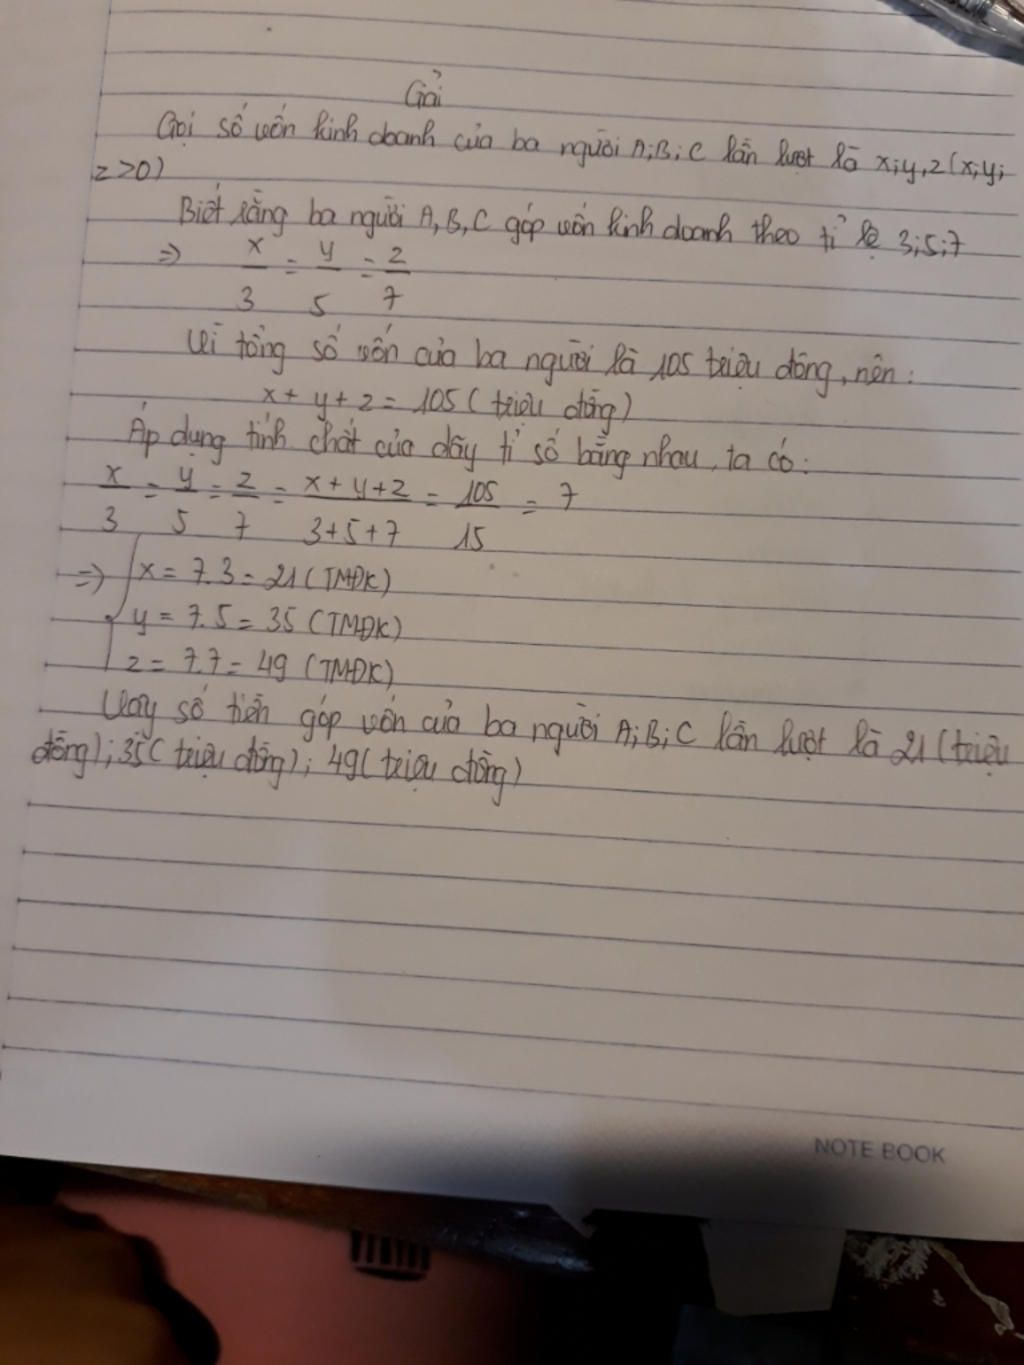 Giải
Gọi số vốn kinh doanh của ba người A;B;C lần lượt là x;y,z(x;y;
z>0)
Biết rằng ba người A,B,C góp vốn kinh doanh theo tỉ lệ 3;5;7
=> x/3 = y/5 = z/7
Vì tổng số vốn của ba người là 105 triệu đồng, nên:
x+y+z=105(triệu đồng)
Áp dụng tính chất của dãy tỉ số bằng nhau, ta có:
x/3 = y/5 = z/7 = x+y+z/3+5+7 = 105/15 = 7
=> x=7.3=21(TMĐK)
y=7.5=35(TMĐK)
z=7.7=49(TMĐK)
Vậy số tiền góp vốn của ba người A;B;C lần lượt là 21(triệu
đồng);35(triệu đồng);49(triệu đồng)
NOTE BOOK